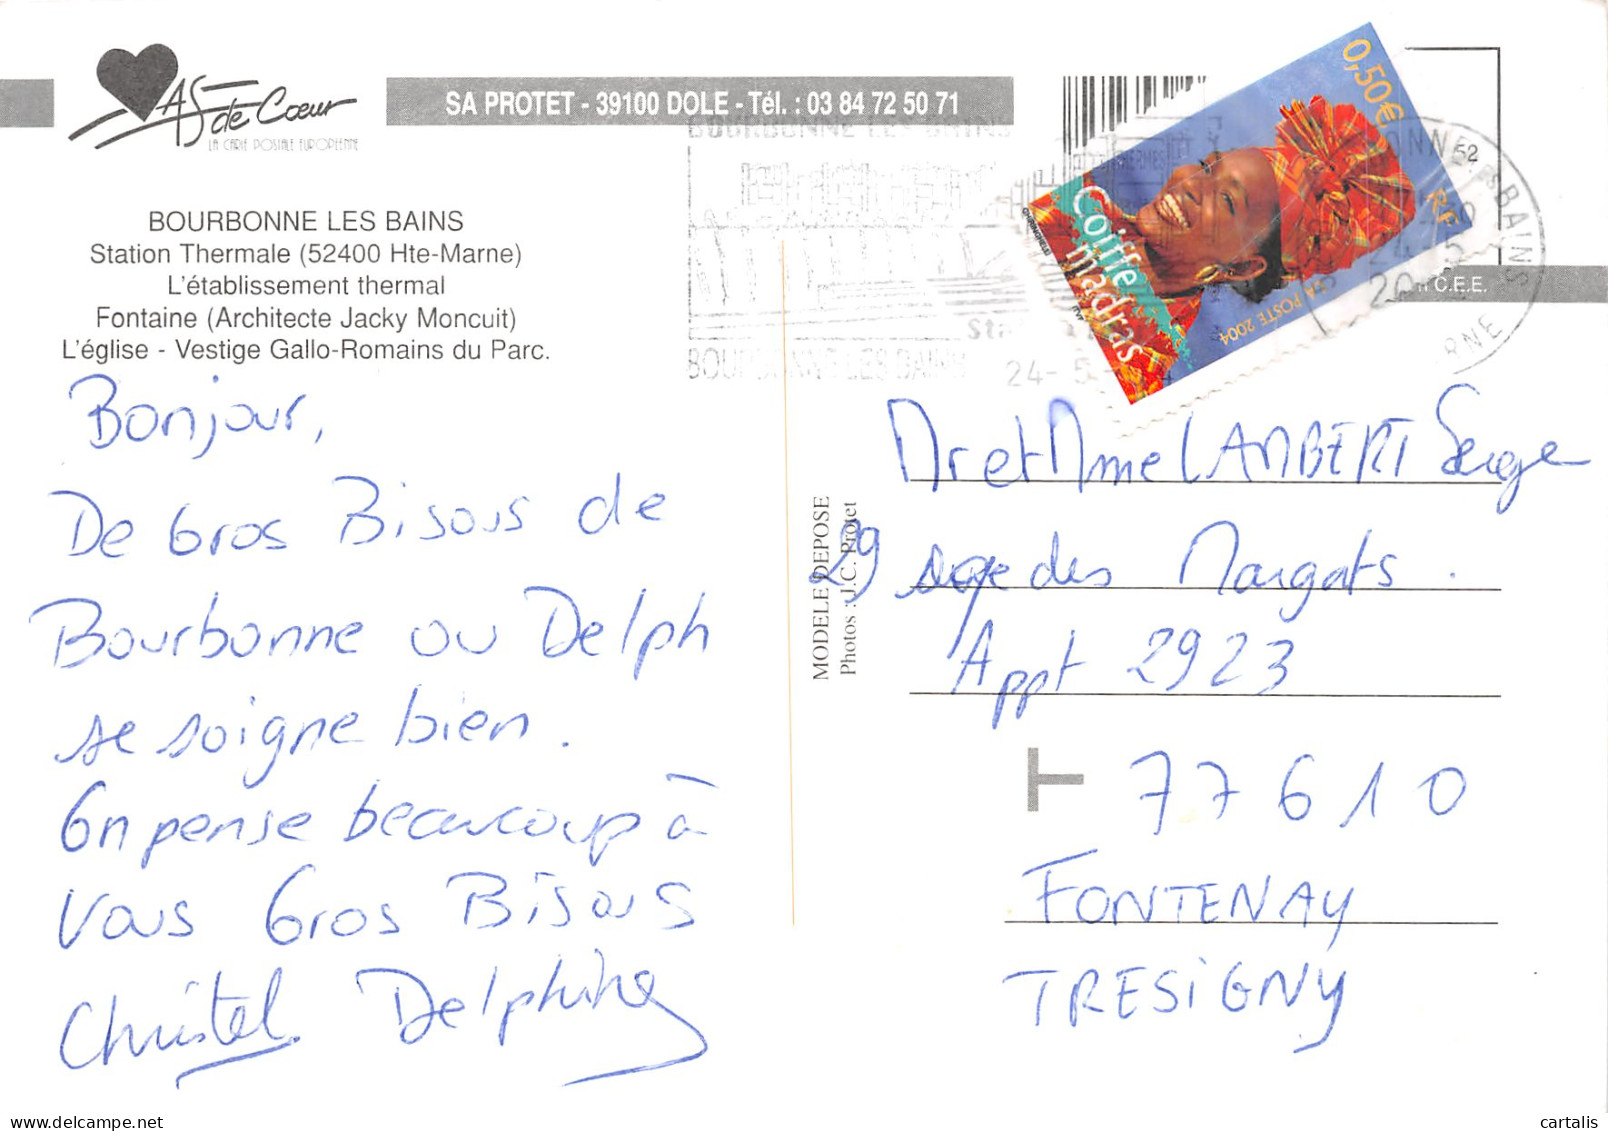 As de Cœur
LA CARTE POSTALE EUROPEENNE
SA PROTET - 39100 DOLE - Tél. : 03 84 72 50 71
BOURBONNE LES BAINS
Station Thermale (52400 Hte-Marne)
L'établissement thermal
Fontaine (Architecte Jacky Moncuit)
L'église - Vestige Gallo-Romains du Parc.
Bonjour,
De Gros Bisous de
Bourbonne ou Delph
se soigne bien.
On pense beaucoup à
vous Gros Bisous
Christel Delphine
MODELE DEPOSE
Photos : J.C. Protet
BOURBONNE LES BAINS
BOURBONNE LES BAINS
24-5
0,50€
RF
Coiffe
madras
LA POSTE 2004
52
C.E.E.
Mr et Mme LAMBERT Serge
29 des Margats.
Appt 2923
77610
FONTENAY
TRESIGNY
cartalis
www.delcampe.net